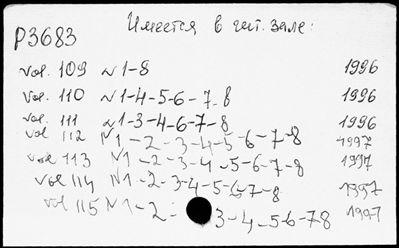 Имеется в чит. зале:
Р3683
vol. 109 N 1-8 1996
vol. 110 N 1-4-5-6-7-8 1996
vol. 111 N 1-3-4-6-7-8 1996
vol 112 N1-2-3-4-5-6-7-8 1997
vol 113 N1-2-3-4-5-6-7-8 1997
vol 114 N1-2-3-4-5-6-7-8 1997
vol 115 N1-2-3-4-5-6-7-8 1997